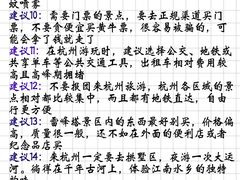 蚊喷雾
建议10：需要门票的景点，要去正规渠道买门
票，不要贪便宜买黄牛票，很容易被骗的，可
能会拿了钱就走了
建议11：在杭州游玩时，建议选择公交、地铁或
共享单车等公共交通工具，出租车相对费用较
高且高峰期拥堵
建议12：不要报团来杭州旅游，杭州各区域的景
点相对都比较集中，而且都有地铁直达，自由
行更方便
建议13：雷峰塔景区内的东西最好别买，价格偏
高，质量很一般，还不如在外面的便利店或者
纪念品店买
建议14：来杭州一定要去拱墅区，夜游一次大运
河。徜徉在千年古河上，体验江南水乡的独特